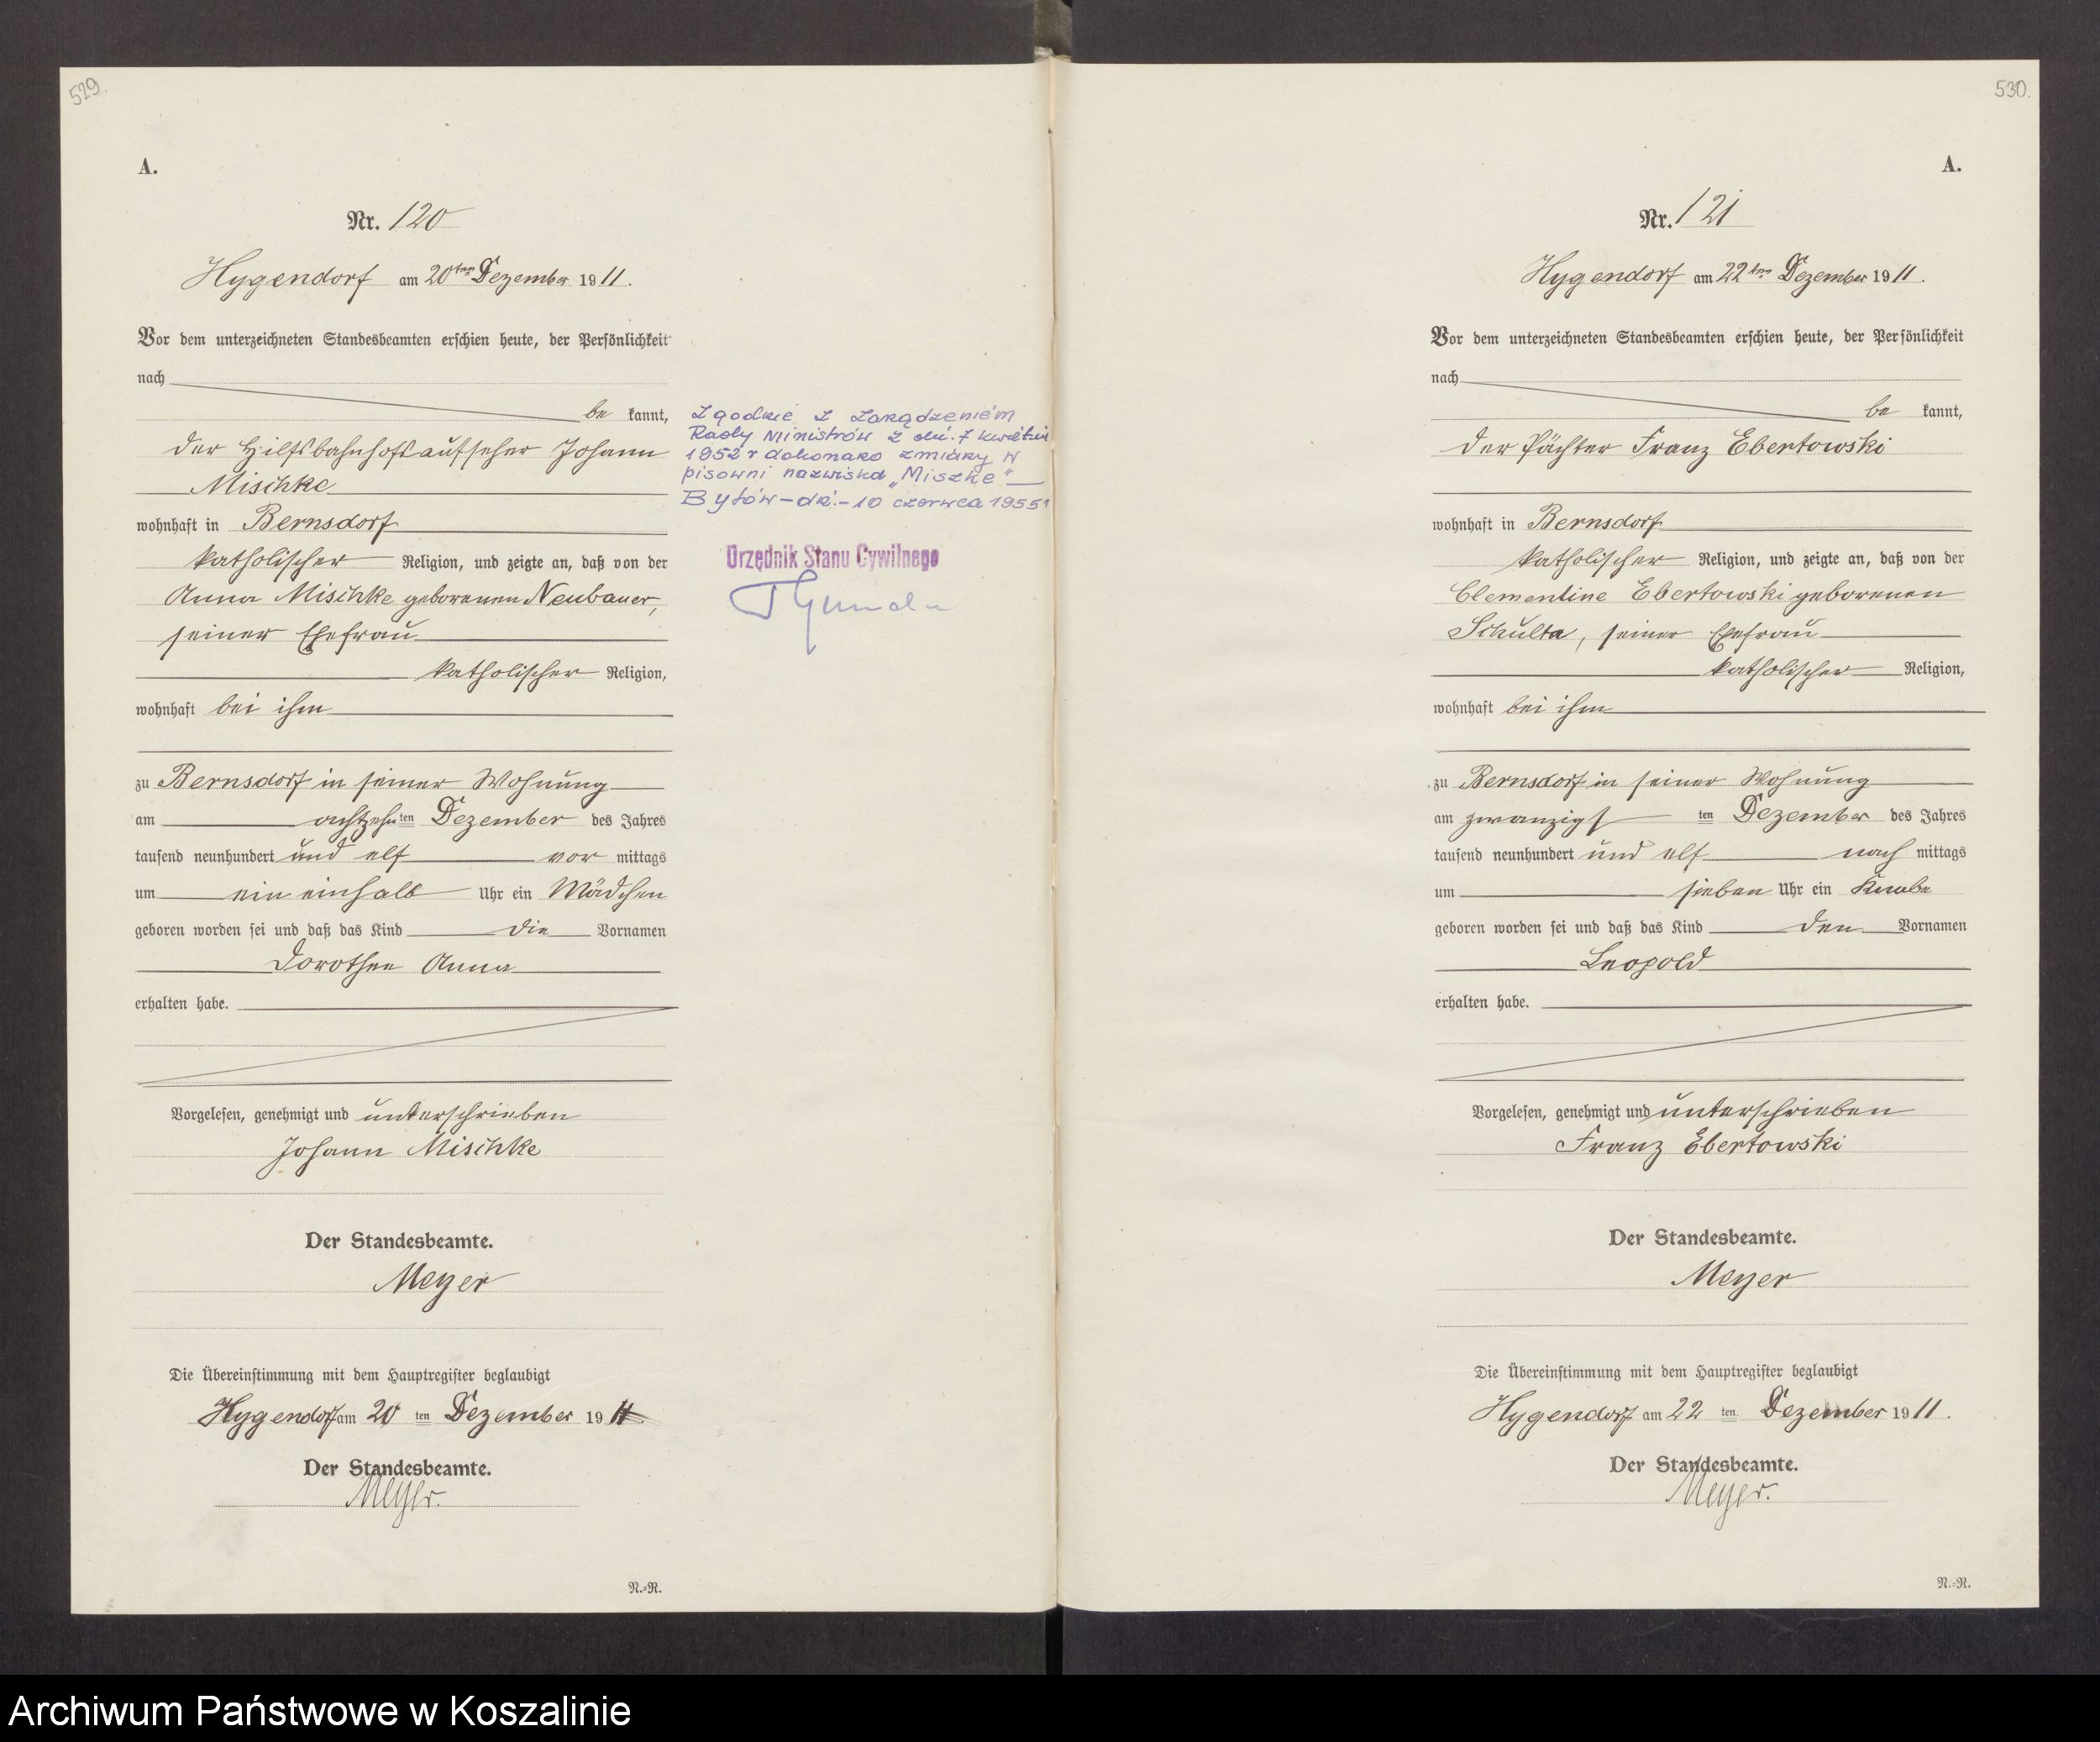 529.
A.
Nr. 120
Hygendorf am 20ten Dezember 1911.
Vor dem unterzeichneten Standesbeamten erschien heute, der Persönlichkeit
nach
be kannt,
der Hilfsbahnhofsaufseher Johann
Mischke
wohnhaft in Bernsdorf
katholischer Religion, und zeigte an, daß von der
Anna Mischke geborenen Neubauer,
seiner Ehefrau
katholischer Religion,
wohnhaft bei ihm
zu Bernsdorf in seiner Wohnung
am achtzehnten Dezember des Jahres
tausend neunhundert und elf vor mittags
um ein einhalb Uhr ein Mädchen
geboren worden sei und daß das Kind die Vornamen
Dorothea Anna
erhalten habe.
Vorgelesen, genehmigt und unterschrieben
Johann Mischke
Der Standesbeamte.
Meyer
Die Übereinstimmung mit dem Hauptregister beglaubigt
Hygendorf am 20 ten Dezember 1911.
Der Standesbeamte.
Meyer.
N.=R.
Zgodnie z zarządzeniem
Rady Ministrów z dn. 7 kwietnia
1952 r dokonano zmiany w
pisowni nazwiska „Miszke"
Bytów – dn. – 10 czerwca 1955 r
Urzędnik Stanu Cywilnego
530.
A.
Nr. 121
Hygendorf am 22ten Dezember 1911.
Vor dem unterzeichneten Standesbeamten erschien heute, der Persönlichkeit
nach
be kannt,
der Pächter Franz Ebertowski
wohnhaft in Bernsdorf
katholischer Religion, und zeigte an, daß von der
Clementine Ebertowski geborenen
Schulta, seiner Ehefrau
katholischer Religion,
wohnhaft bei ihm
zu Bernsdorf in seiner Wohnung
am zwanzigsten Dezember des Jahres
tausend neunhundert und elf nach mittags
um sieben Uhr ein Knabe
geboren worden sei und daß das Kind den Vornamen
Leopold
erhalten habe.
Vorgelesen, genehmigt und unterschrieben
Franz Ebertowski
Der Standesbeamte.
Meyer
Die Übereinstimmung mit dem Hauptregister beglaubigt
Hygendorf am 22 ten Dezember 1911.
Der Standesbeamte.
Meyer.
N.=R.
Archiwum Państwowe w Koszalinie